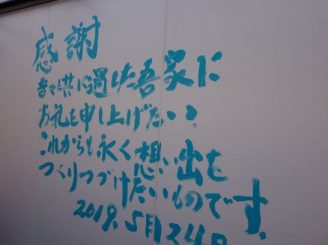 感謝
昔々共に過した吾家に
お礼を申し上げたい。
これからも永く想い出を
つくりつづけたいものです。
2019.5月24日